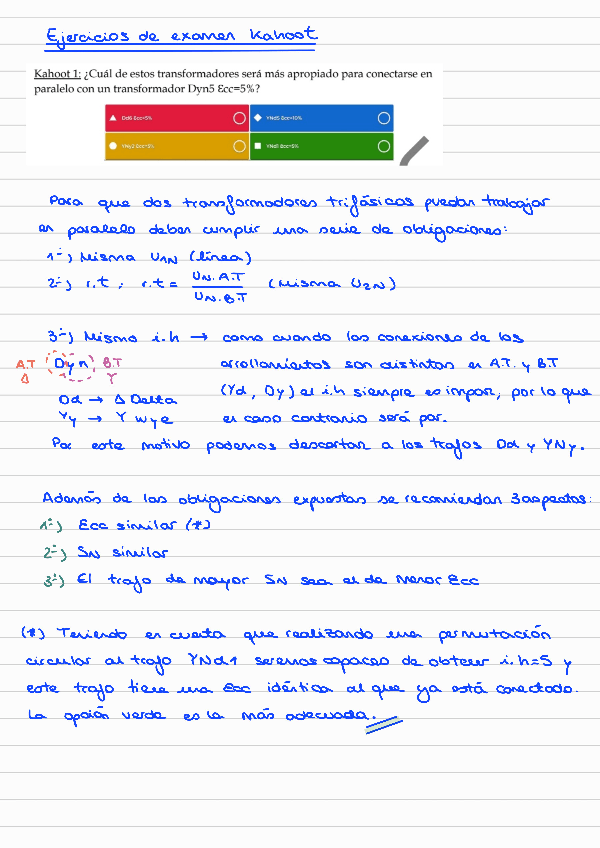 Ejercicios de examen Kahoot
Kahoot 1: ¿Cuál de estos transformadores será más apropiado para conectarse en
paralelo con un transformador Dyn5 Ɛcc=5%?
Dd6 Ɛcc=5%
YNd5 Ɛcc=10%
YNy2 Ɛcc=5%
YNd1 Ɛcc=5%
Para que dos transformadores trifásicos puedan trabajar
en paralelo deben cumplir una serie de obligaciones:
1º) Misma U1N (línea)
2º) r.t ; r.t = UN.A.T / UN.B.T (Misma U2N)
3º) Mismo i.h → como cuando las conexiones de los
A.T Dyn B.T arrollamientos son distintas en A.T. y B.T
Δ Y (Yd, Dy) el i.h siempre es impar, por lo que
Dd → Δ Delta
Yy → Y Wye en caso contrario será par.
Por este motivo podemos descartar a los trafos Dd y YNy.
Además de las obligaciones expuestas se recomiendan 3 aspectos:
1º) Ɛcc similar (*)
2º) SN similar
3º) El trafo de mayor SN sea el de menor Ɛcc
(*) Teniendo en cuenta que realizando una permutación
circular al trafo YNd1 seremos capaces de obtener i.h=5 y
este trafo tiene una Ɛcc idéntica al que ya está conectado.
La opción verde es la más adecuada.